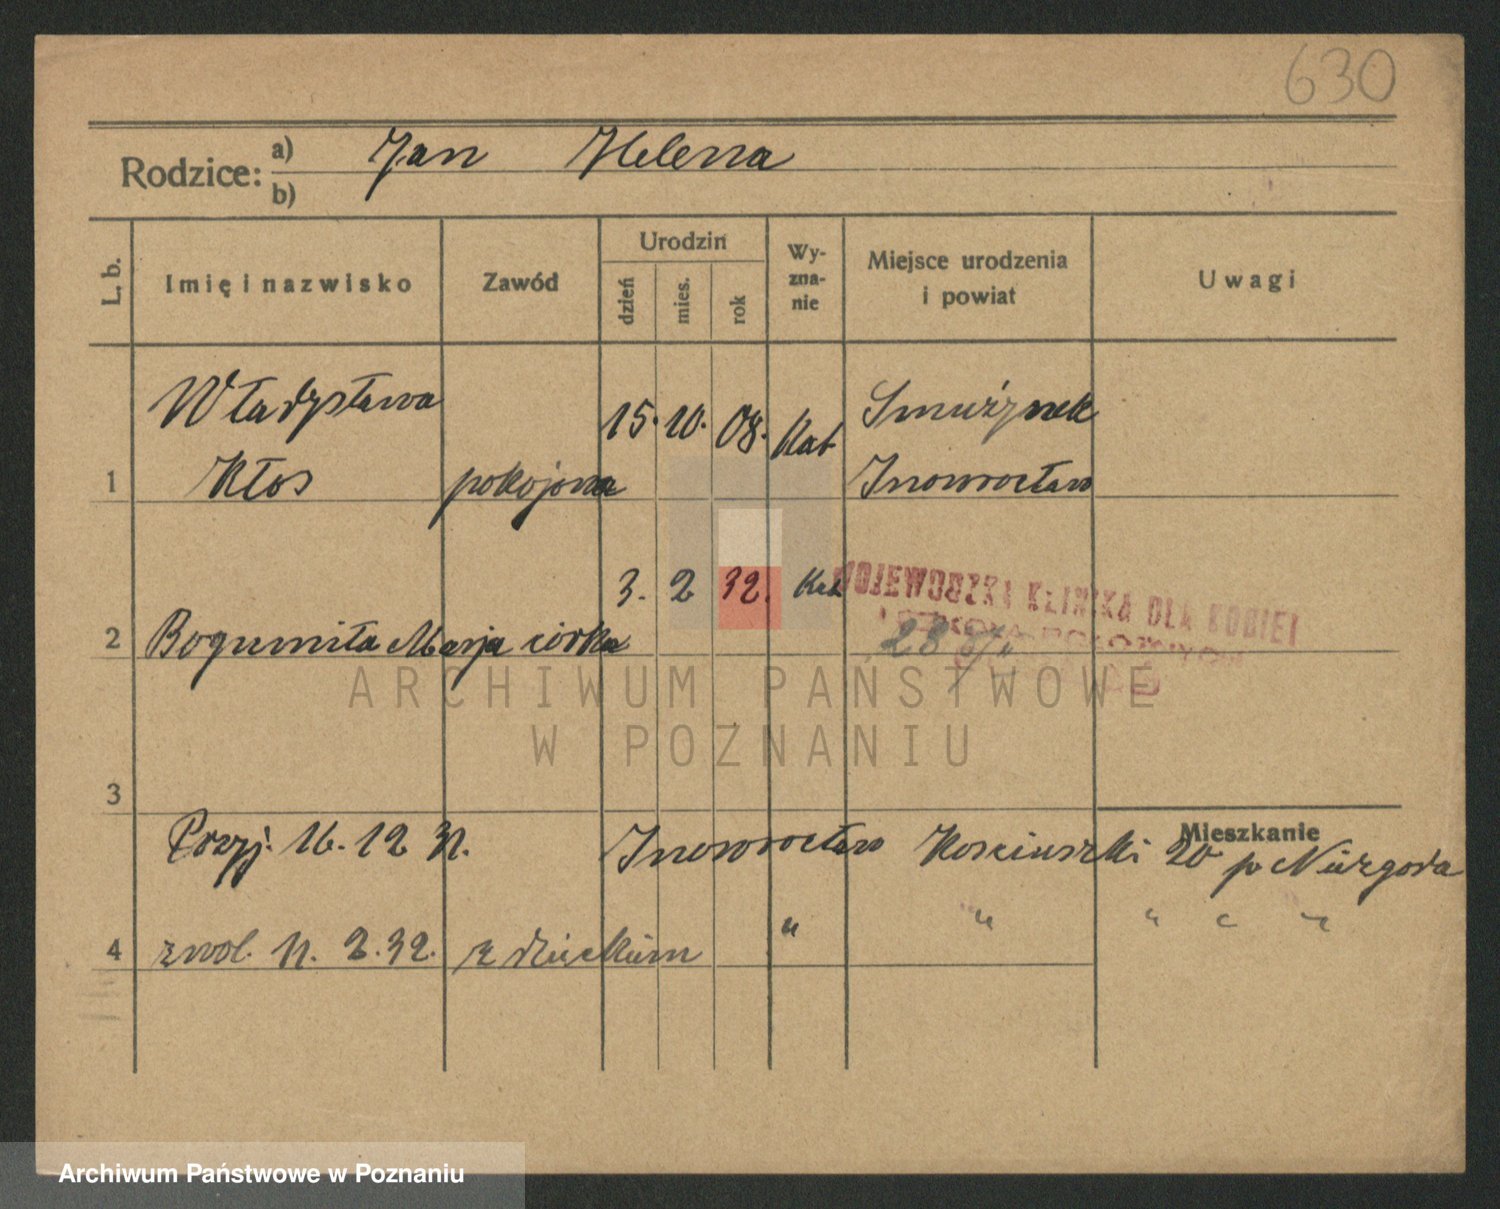 630
Rodzice: a) Jan Helena
b)
L. b.
Imię i nazwisko
Zawód
Urodzin
dzień
mies.
rok
Wy-
zna-
nie
Miejsce urodzenia
i powiat
Uwagi
Władysława
15. 10. 08. Kat
1 Kłos pokojowa
Inowrocław
3. 2 32. Kat
WOJEWÓDZKA KLINIKA DLA KOBIET
2 Bogumiła Marja córka
28
ARCHIWUM PAŃSTWOWE
W POZNANIU
3
Mieszkanie
Przyj. 16. 12 31. Inowrocław Kościuszki 20 p Niezgoda
4 zwol. 11. 2. 32. z dzieckiem " " " " "
Archiwum Państwowe w Poznaniu